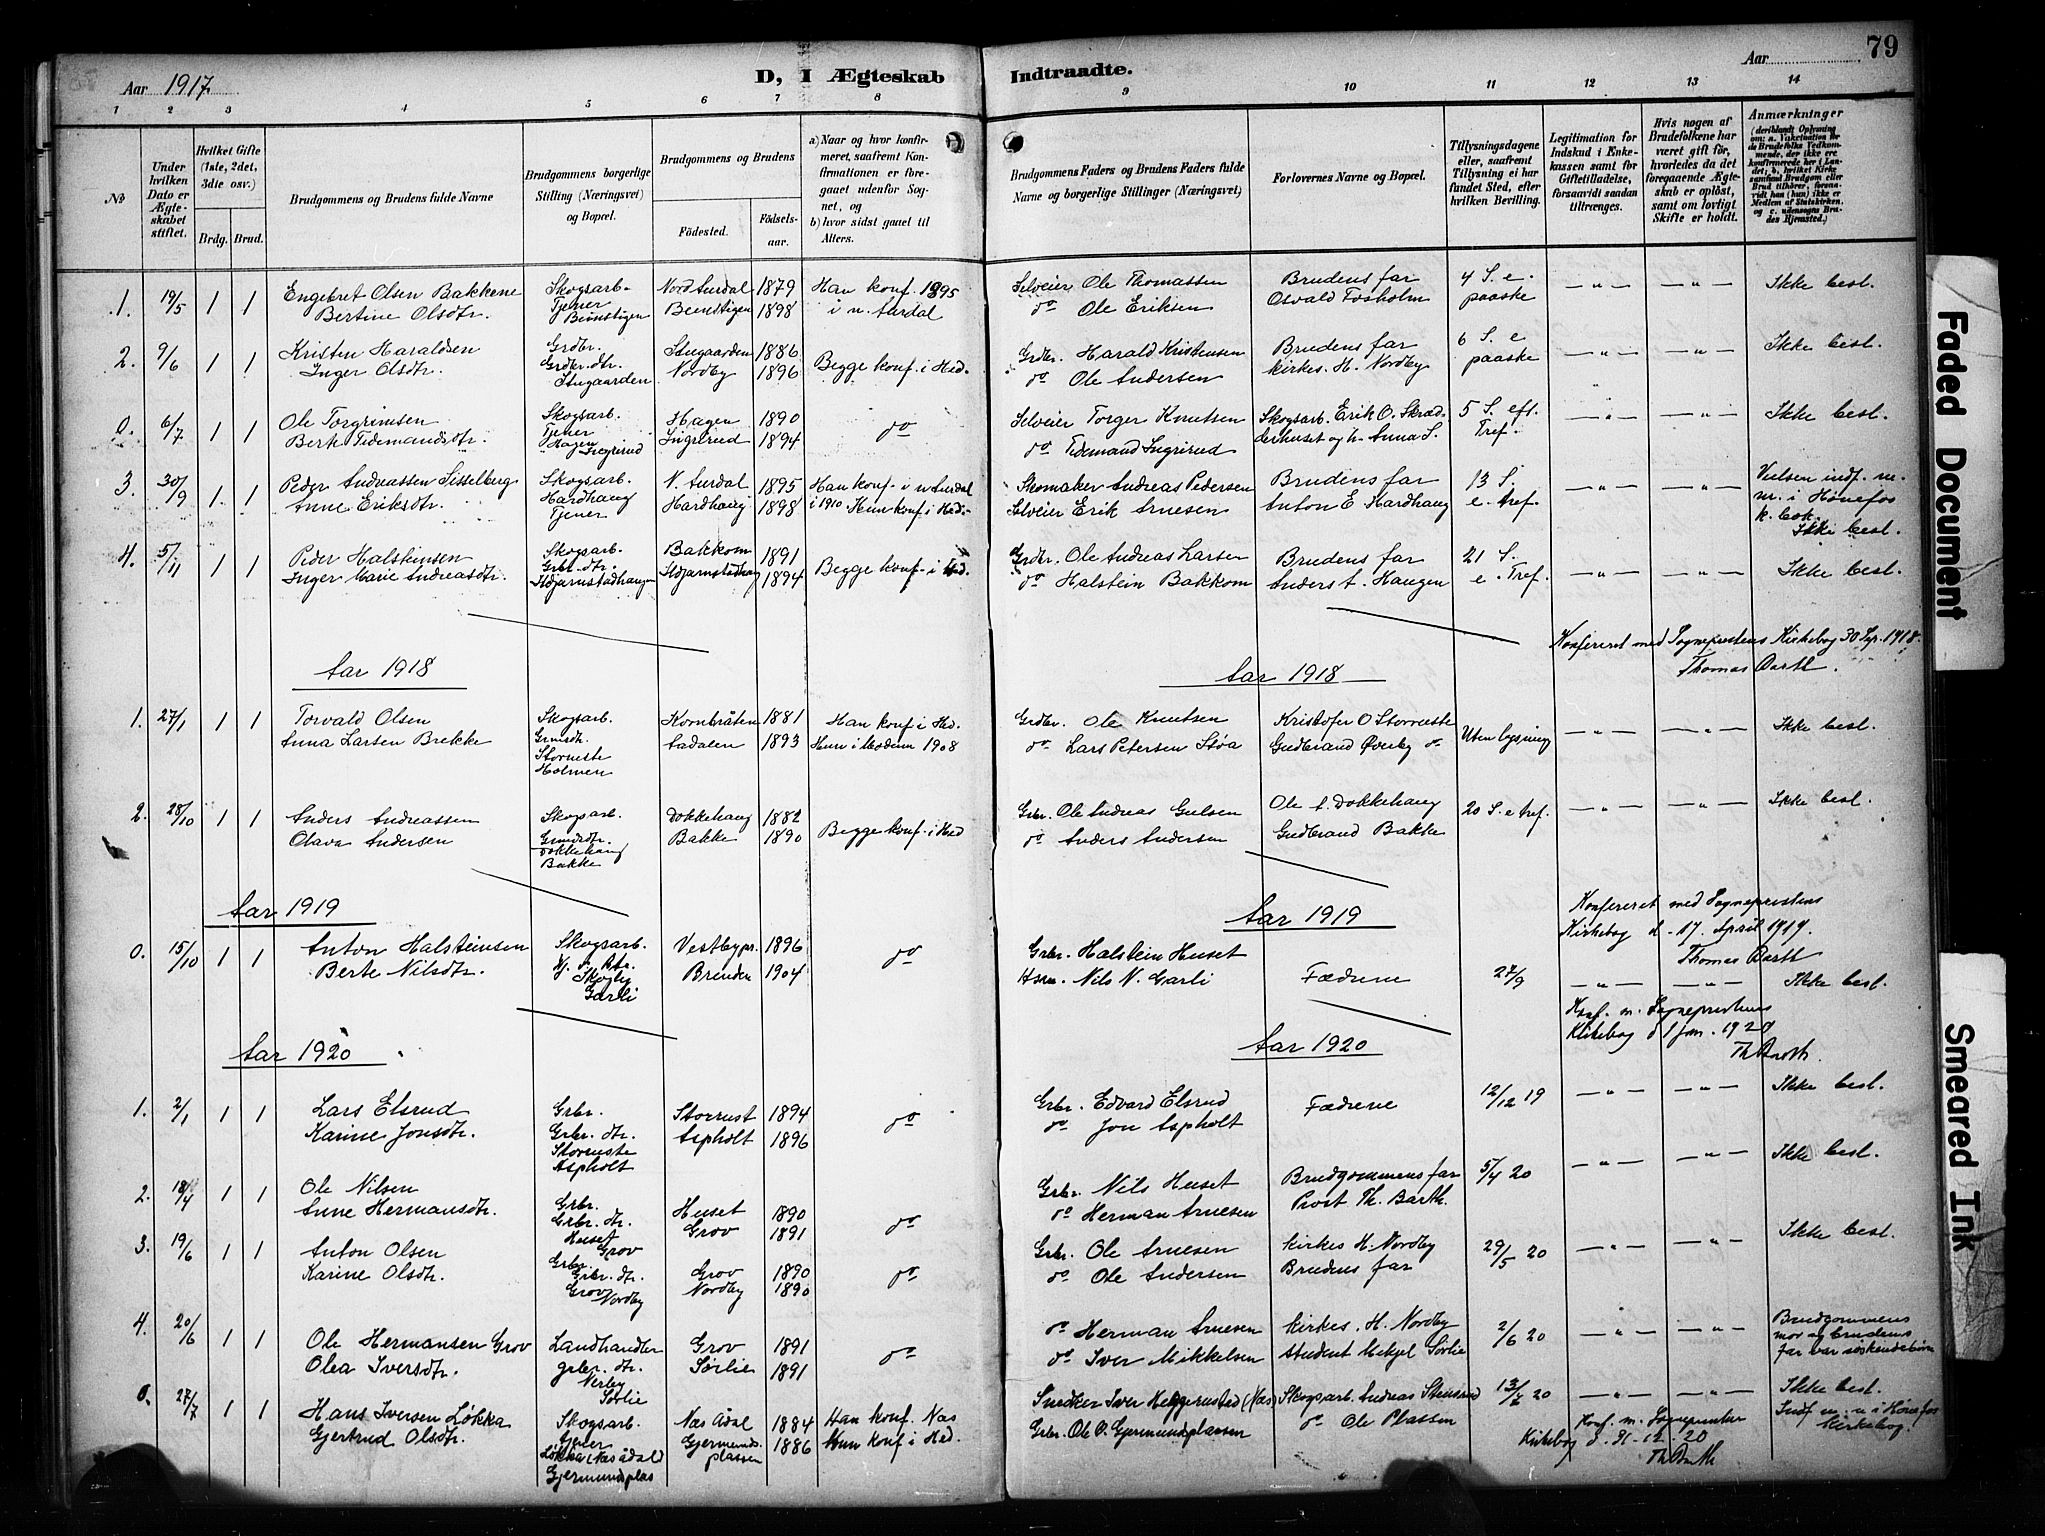 Aar 1917.
D, I Ægteskab
Indtraadte.
Aar
79
1 2 3 4 5 6 7 8 9 10 11 12 13 14
№
Under hvilken Dato er Ægteskabet stiftet.
Hvilket Gifte (1ste, 2det, 3die osv.)
Brdg. Brud.
Brudgommens og Brudens fulde Navne
Brudgommens borgerlige Stilling (Næringsvei) og Bopæl.
Brudgommens og Brudens
Fødested.
Fødselsaar.
a) Naar og hvor konfirmeret, saafremt Konfirmationen er foregaaet udenfor Sognet, og
b) hvor sidst gaaet til Alters.
Brudgommens Faders og Brudens Faders fulde Navne og borgerlige Stillinger (Næringsvei)
Forlovernes Navne og Bopæl.
Tillysningsdagene eller, saafremt Tillysning ei har fundet Sted, efter hvilken Bevilling.
Legitimation for Indskud i Enkekassen samt for Giftetilladelse, forsaavidt saadan tiltrænges.
Hvis nogen af Brudefolkene har været gift før, hvorledes da det foregaaende Ægteskab er opløst, samt om lovligt Skifte er holdt.
Anmærkninger
1. 19/5 1 1 Engebret Olsen Bakkene Skogsarb. Nord Aurdal 1879 Han konf. 1895 Selveier Ole Thomassen Brudens far 4 S. e. — " — — " — Ikke besl.
Bertine Olsdtr. Tjener Bunstigen Bunstigen 1898 i n. Aurdal do Ole Eriksen Osvald Fosholm paaske
2. 9/6 1 1 Kristen Haraldsen Grdbr. Stugaarden 1886 Begge konf. i Hed. Grdbr. Harald Kristensen Brudens far 6 S. e — " — — " — Ikke besl.
Inger Olsdtr. Grdbr. dtr. Stugaarden Nordby 1896 do Ole Andersen kirkes. H. Nordby paaske
0. 6/7 1 1 Ole Torgrimsen Skogsarb. Hagen 1890 do Selveier Torger Knutsen Skogsarb. Erik O. Skræd- 5 S. eft. — " — — " — Ikke besl.
Berte Tidemandsdtr. Tjener Hagen Ingrirud Ingrirud 1894 do Tidemand Ingrirud derhuset og h. Anna S. Tref.
3. 30/9 1 1 Peder Andreassen Sisselberg Skogsarb. N. Aurdal 1895 Han konf. i n Aurdal Skomaker Andreas Pedersen Brudens far 13 S. — " — — " — Vielsen indf. m.
Anne Eriksdtr. Hardhaug Tjener Hardhaug 1898 i 1910 Hun konf. i Hed. Selveier Erik Arnesen Anton E Hardhaug e. tref. nr. i Hønefos
k. bok.
Ikke besl.
4. 5/11 1 1 Peder Halsteinsen Skogsarb. Bakkom 1891 Begge konf. i Hed. Grdbr. Ole Andreas Larsen Brudens far 21 S. — " — — " — Ikke besl.
Inger Marie Andreasdtr. Grbr. dtr. Stdjarnstadhaugen Stdjarnstadhaug 1894 do Halstein Bakkom Anders A. Haugen e. Tref.
Konfereret med Sogneprestens Kirkebog 30 Sep. 1918.
Thomas Barth.
Aar 1918
Aar 1918
1. 27/1 1 1 Torvald Olsen Skogsarb. Kornbråten 1881 Han konf i Hed. Grdbr. Ole Knutsen Kristofer O Storruste Uten lysning — " — — " — Ikke besl.
Anna Larsen Brekke Grmdtr. Aadalen 1893 Hun i Modum 1908 do Lars Petersen Støa Gudbrand Øverby do
Storruste
Holmen
2. 28/10 1 1 Anders Andreassen Skogsarb. Dokkehaug 1882 Begge konf. i Hed Grbr. Ole Andreas Gulsen Ole A. Dokkehaug 20 S. e tref. — " — — " — Ikke besl.
Olava Andersen Grmdtr. Bakke 1890 do Anders Andersen Gudbrand Bakke
Dokkehaug
Bakke
Aar 1919
Aar 1919
Konfereret med Sogneprestens
Kirkebog d. 17. April 1919.
Thomas Barth
0. 15/10 1 1 Anton Halsteinsen Skogsarb. Vestbygr. 1896 do Grbr. Halstein Huset
Berte Nilsdtr. Skogly Garli Brenden 1904 Hsm. Nils N. Garli Fædrene 27/9 — " — — " — Ikke besl.
Konf. m. Sogneprestens
Kirkebog d 1 Jan. 1920
Th Barth.
Aar 1920
Aar 1920
1. 2/1 1 1 Lars Elsrud Grbr. Storrust 1894 do Grbr. Edvard Elsrud Fædrene 12/12 19 — " — — " — Ikke besl.
Karine Jonsdtr. Grbr. dtr. Aspholt 1896 do Jon Aspholt
Storruste
Aspholt
2. 18/4 1 1 Ole Nilsen Grbr. Huset 1890 do Grbr. Nils Huset Brudgommens far 5/4 20 — " — — " — Ikke besl.
Anne Hermansdtr. Grbr. dtr. Huset Grov Grov 1891 do Herman Arnesen Prost Th. Barth.
3. 19/6 1 1 Anton Olsen Grbr. Grov 1890 do Grbr. Ole Arnesen kirkes H. Nordby 29/5 20 — " — — " — Ikke besl.
Karine Olsdtr. Grbr. dtr. Grov Nordby Nordby 1890 do Ole Andersen Brudens far
4. 20/6 1 1 Ole Hermansen Grov Landhandler Grov 1891 do do Herman Arnesen kirkes. H. Nordby 2/6 20 — " — — " — Brudgommens
Olea Iversdtr. grbr. dtr. Nerby Sørlie Sørlie 1891 do Iver Mikkelsen student Mikjel Sørlie mor og brudens
far var søskendebørn
0. 27/7 1 1 Hans Iversen Løkka Skogsarb. Næs Ådal 1884 Han konf. Næs Snedker Iver Heggerustad (Næs) Skogsarb. Andreas Stensrud 13/6 20 — " — — " — Ikke besl.
Gjertrud Olsdtr. Tjener Gjermundsplassen 1886 Hun konf i Hed. Grbr. Ole O. Gjermundsplassen do Ole Plassen Indf. m. n i Hønefos
Kirkebog.
Løkka i Næs ådal
Gjermundsplas
Konf. m. Sogneprestens
Kirkebog d. 31-12-20
Th Barth
Faded Document
Smeared Ink